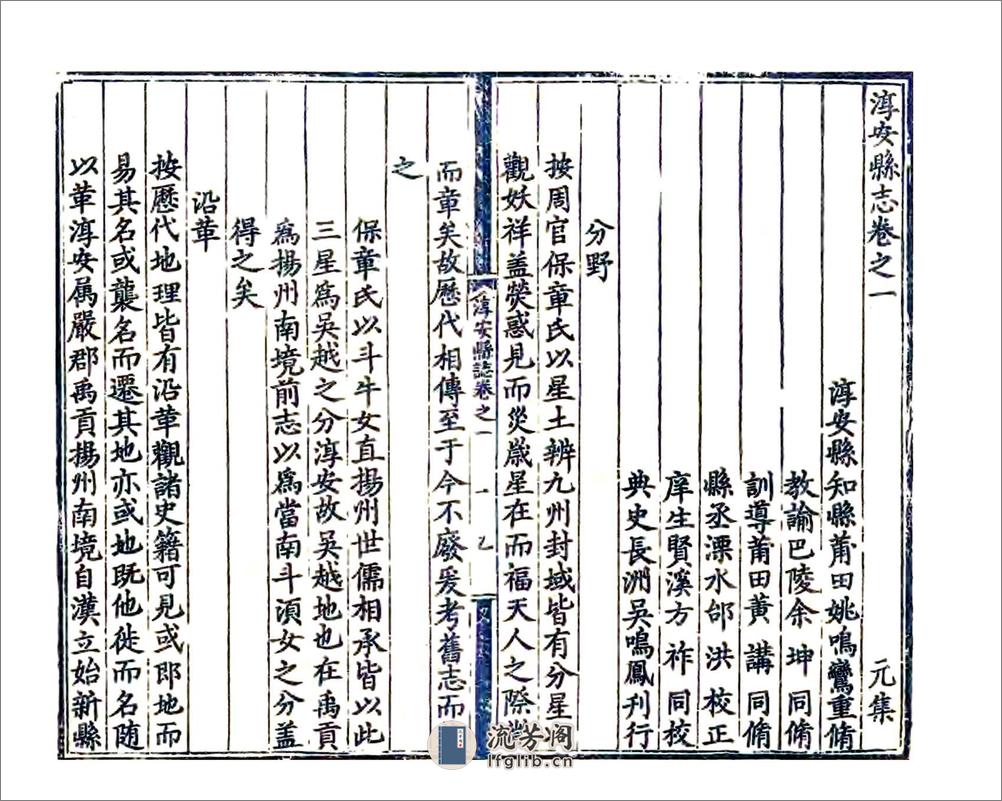 淳安縣志卷之一 元集
淳安縣知縣莆田姚鳴鸞重脩
教諭巴陵余坤同脩
訓導莆田黄講同脩
縣丞溧水邰洪校正
庠生賢溪方祚同校
典史長洲吳鳴鳳刊行
分野
按周官保章氏以星土辨九州封域皆有分星
觀妖祥盖熒惑見而災嵗星在而福天人之際
而章矣故歷代相傳至于今不廢爰考舊志而
之
保章氏以斗牛女直揚州世儒相承皆以此
三星爲吳越之分淳安故吳越地也在禹貢
爲揚州南境前志以爲當南斗湏女之分盖
得之矣
沿革
按歷代地理皆有沿革觀諸史籍可見或即地而
易其名或襲名而遷其地亦或地既他徙而名随
以革淳安属嚴郡禹貢揚州南境自漢立始新縣
淳安縣誌卷之一 一 乙
流芳阁
lfglib.cn